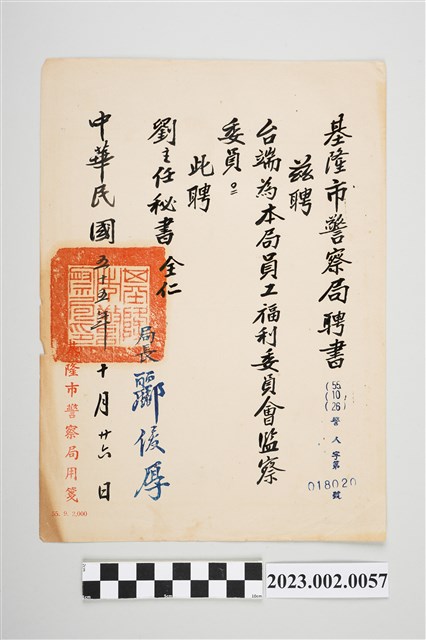 基隆市警察局聘書
(55 10 26) 警人字第 018020 號
茲聘
台端為本局員工福利委員會监察
委員。
此聘
劉主任秘書全仁
局長 酈俊厚
中華民國五十五年十月廿六日
隆市警察局用箋
2,000
2023.002.0057